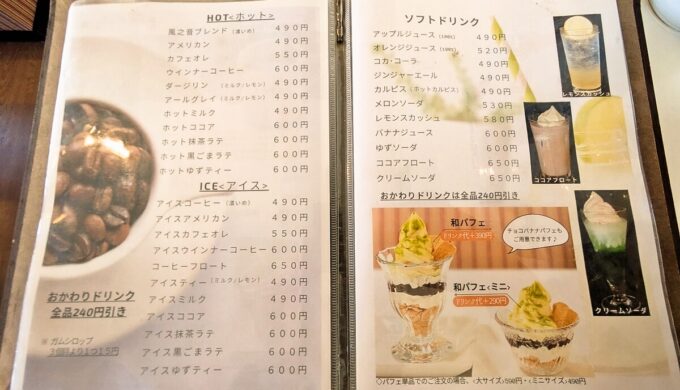 HOT<ホット>
風之音ブレンド (濃いめ) 490円
アメリカン 490円
カフェオレ 550円
ウインナーコーヒー 600円
ダージリン (ミルク/レモン) 490円
アールグレイ (ミルク/レモン) 490円
ホットミルク 490円
ホットココア 600円
ホット抹茶ラテ 600円
ホット黒ごまラテ 600円
ホットゆずティー 600円
ICE<アイス>
アイスコーヒー (濃いめ) 490円
アイスアメリカン 490円
アイスカフェオレ 550円
アイスウインナーコーヒー 600円
コーヒーフロート 650円
アイスティー (ミルク/レモン) 490円
アイスミルク 490円
アイスココア 600円
アイス抹茶ラテ 600円
アイス黒ごまラテ 600円
アイスゆずティー 600円
おかわりドリンク
全品240円引き
※ ガムシロップ
3個目より1つ15円
ソフトドリンク
アップルジュース (100%) 490円
オレンジジュース (100%) 520円
コカ・コーラ 490円
ジンジャーエール 490円
カルピス (ホットカルピス) 490円
メロンソーダ 530円
レモンスカッシュ 580円
バナナジュース 600円
ゆずソーダ 600円
ココアフロート 650円
クリームソーダ 650円
おかわりドリンクは全品240円引き
レモンスカッシュ
ココアフロート
クリームソーダ
和パフェ
ドリンク代+390円
チョコバナナパフェも
ご用意できます♪
和パフェ<ミニ>
ドリンク代+290円
◇パフェ単品でのご注文の場合、<大サイズ>590円・<ミニサイズ>490円